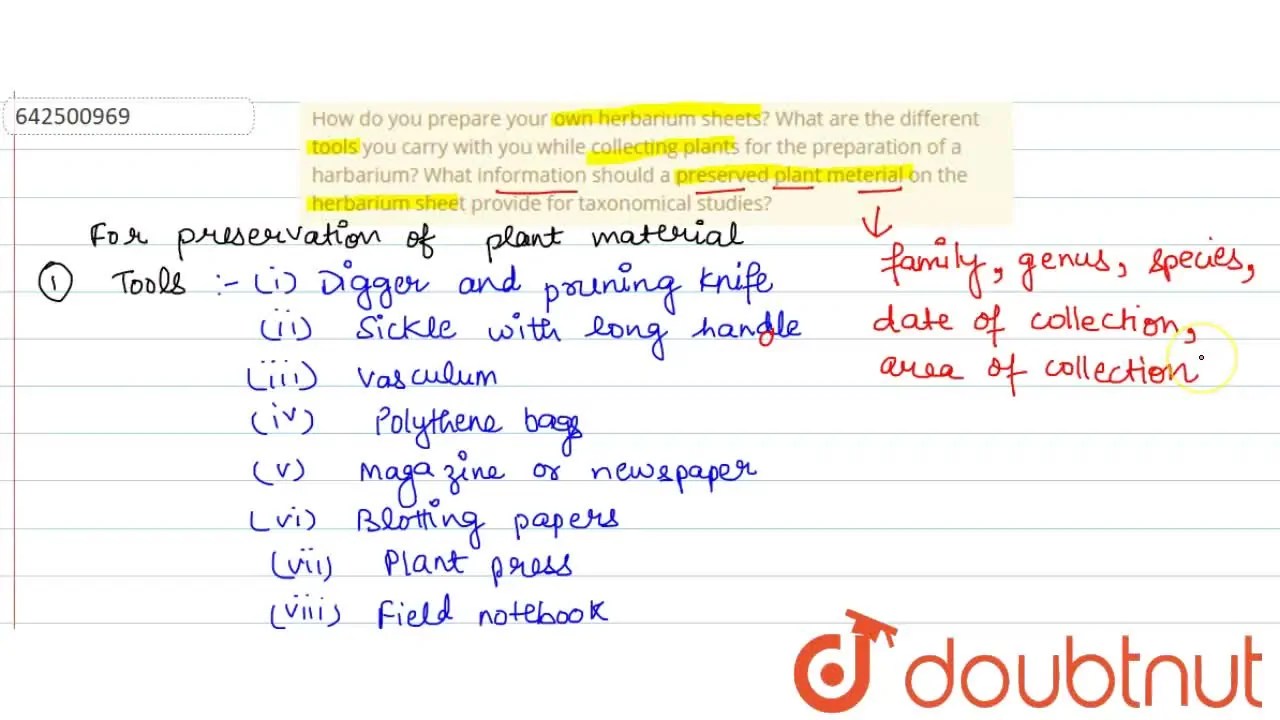 642500969
How do you prepare your own herbarium sheets? What are the different
tools you carry with you while collecting plants for the preparation of a
harbarium? What information should a preserved plant meterial on the
herbarium sheet provide for taxonomical studies?
For preservation of plant material
① Tools :- (i) Digger and pruning knife
(ii) Sickle with long handle
(iii) Vasculum
(iv) Polythene bags
(v) Magazine or newspaper
(vi) Blotting papers
(vii) Plant press
(viii) Field notebook
family, genus, species,
date of collection,
area of collection
doubtnut